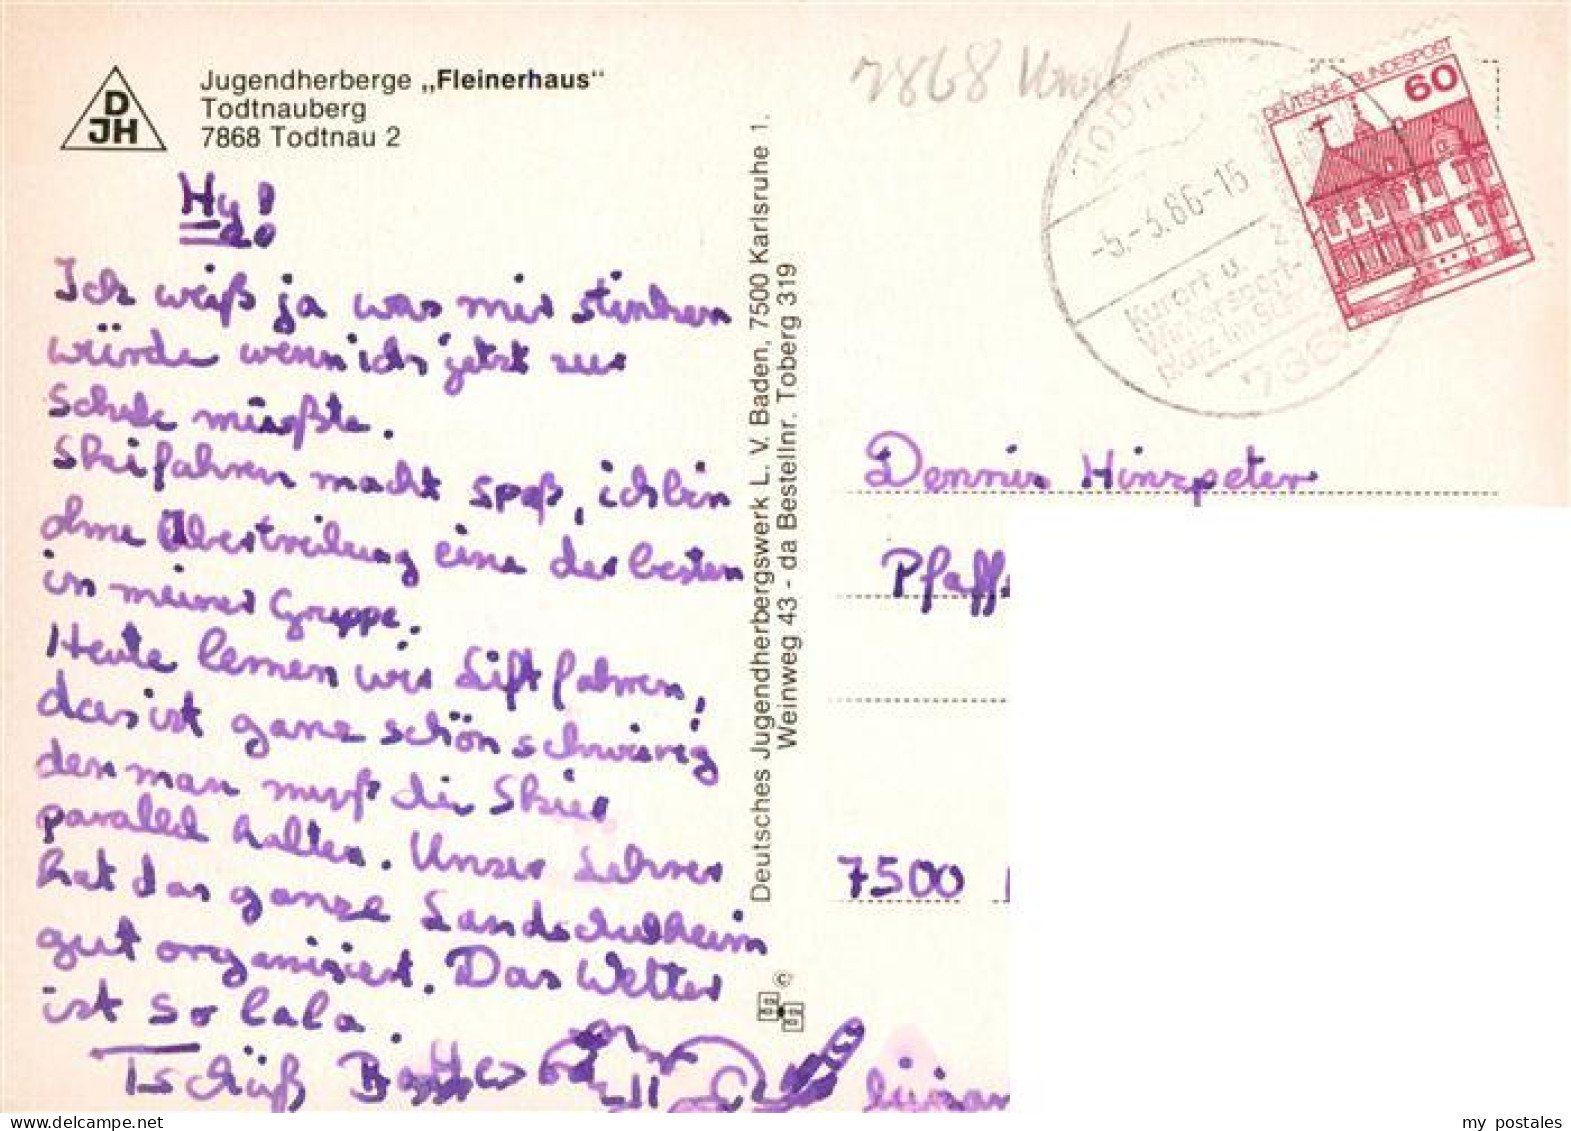 Jugendherberge „Fleinerhaus“
Todtnauberg
7868 Todtnau 2
D
JH
Hy!
Ich weiß ja was mir stinken
würde wenn ich jetzt zur
Schule müßte.
Skifahren macht spaß, ich bin
ohne Übertreibung eine der besten
in meiner Gruppe.
Heute lernen wir Liftfahren,
das ist ganz schön schwierig
den man muß die Skier
parallel halten. Unser Lehrer
hat das ganze Landschulheim
gut organisiert. Das Wetter
ist so lala.
Tschüß
Deutsches Jugendherbergswerk L. V. Baden, 7500 Karlsruhe 1.
Weinweg 43 - da Bestellnr. Toberg 319
©
7868
TODTNAU
-5.-3.86-15
Kurort u.
Wintersport-
platz im
DEUTSCHE BUNDESPOST
60
Dennis Hinzpeter
Pfaff
7500
my postales